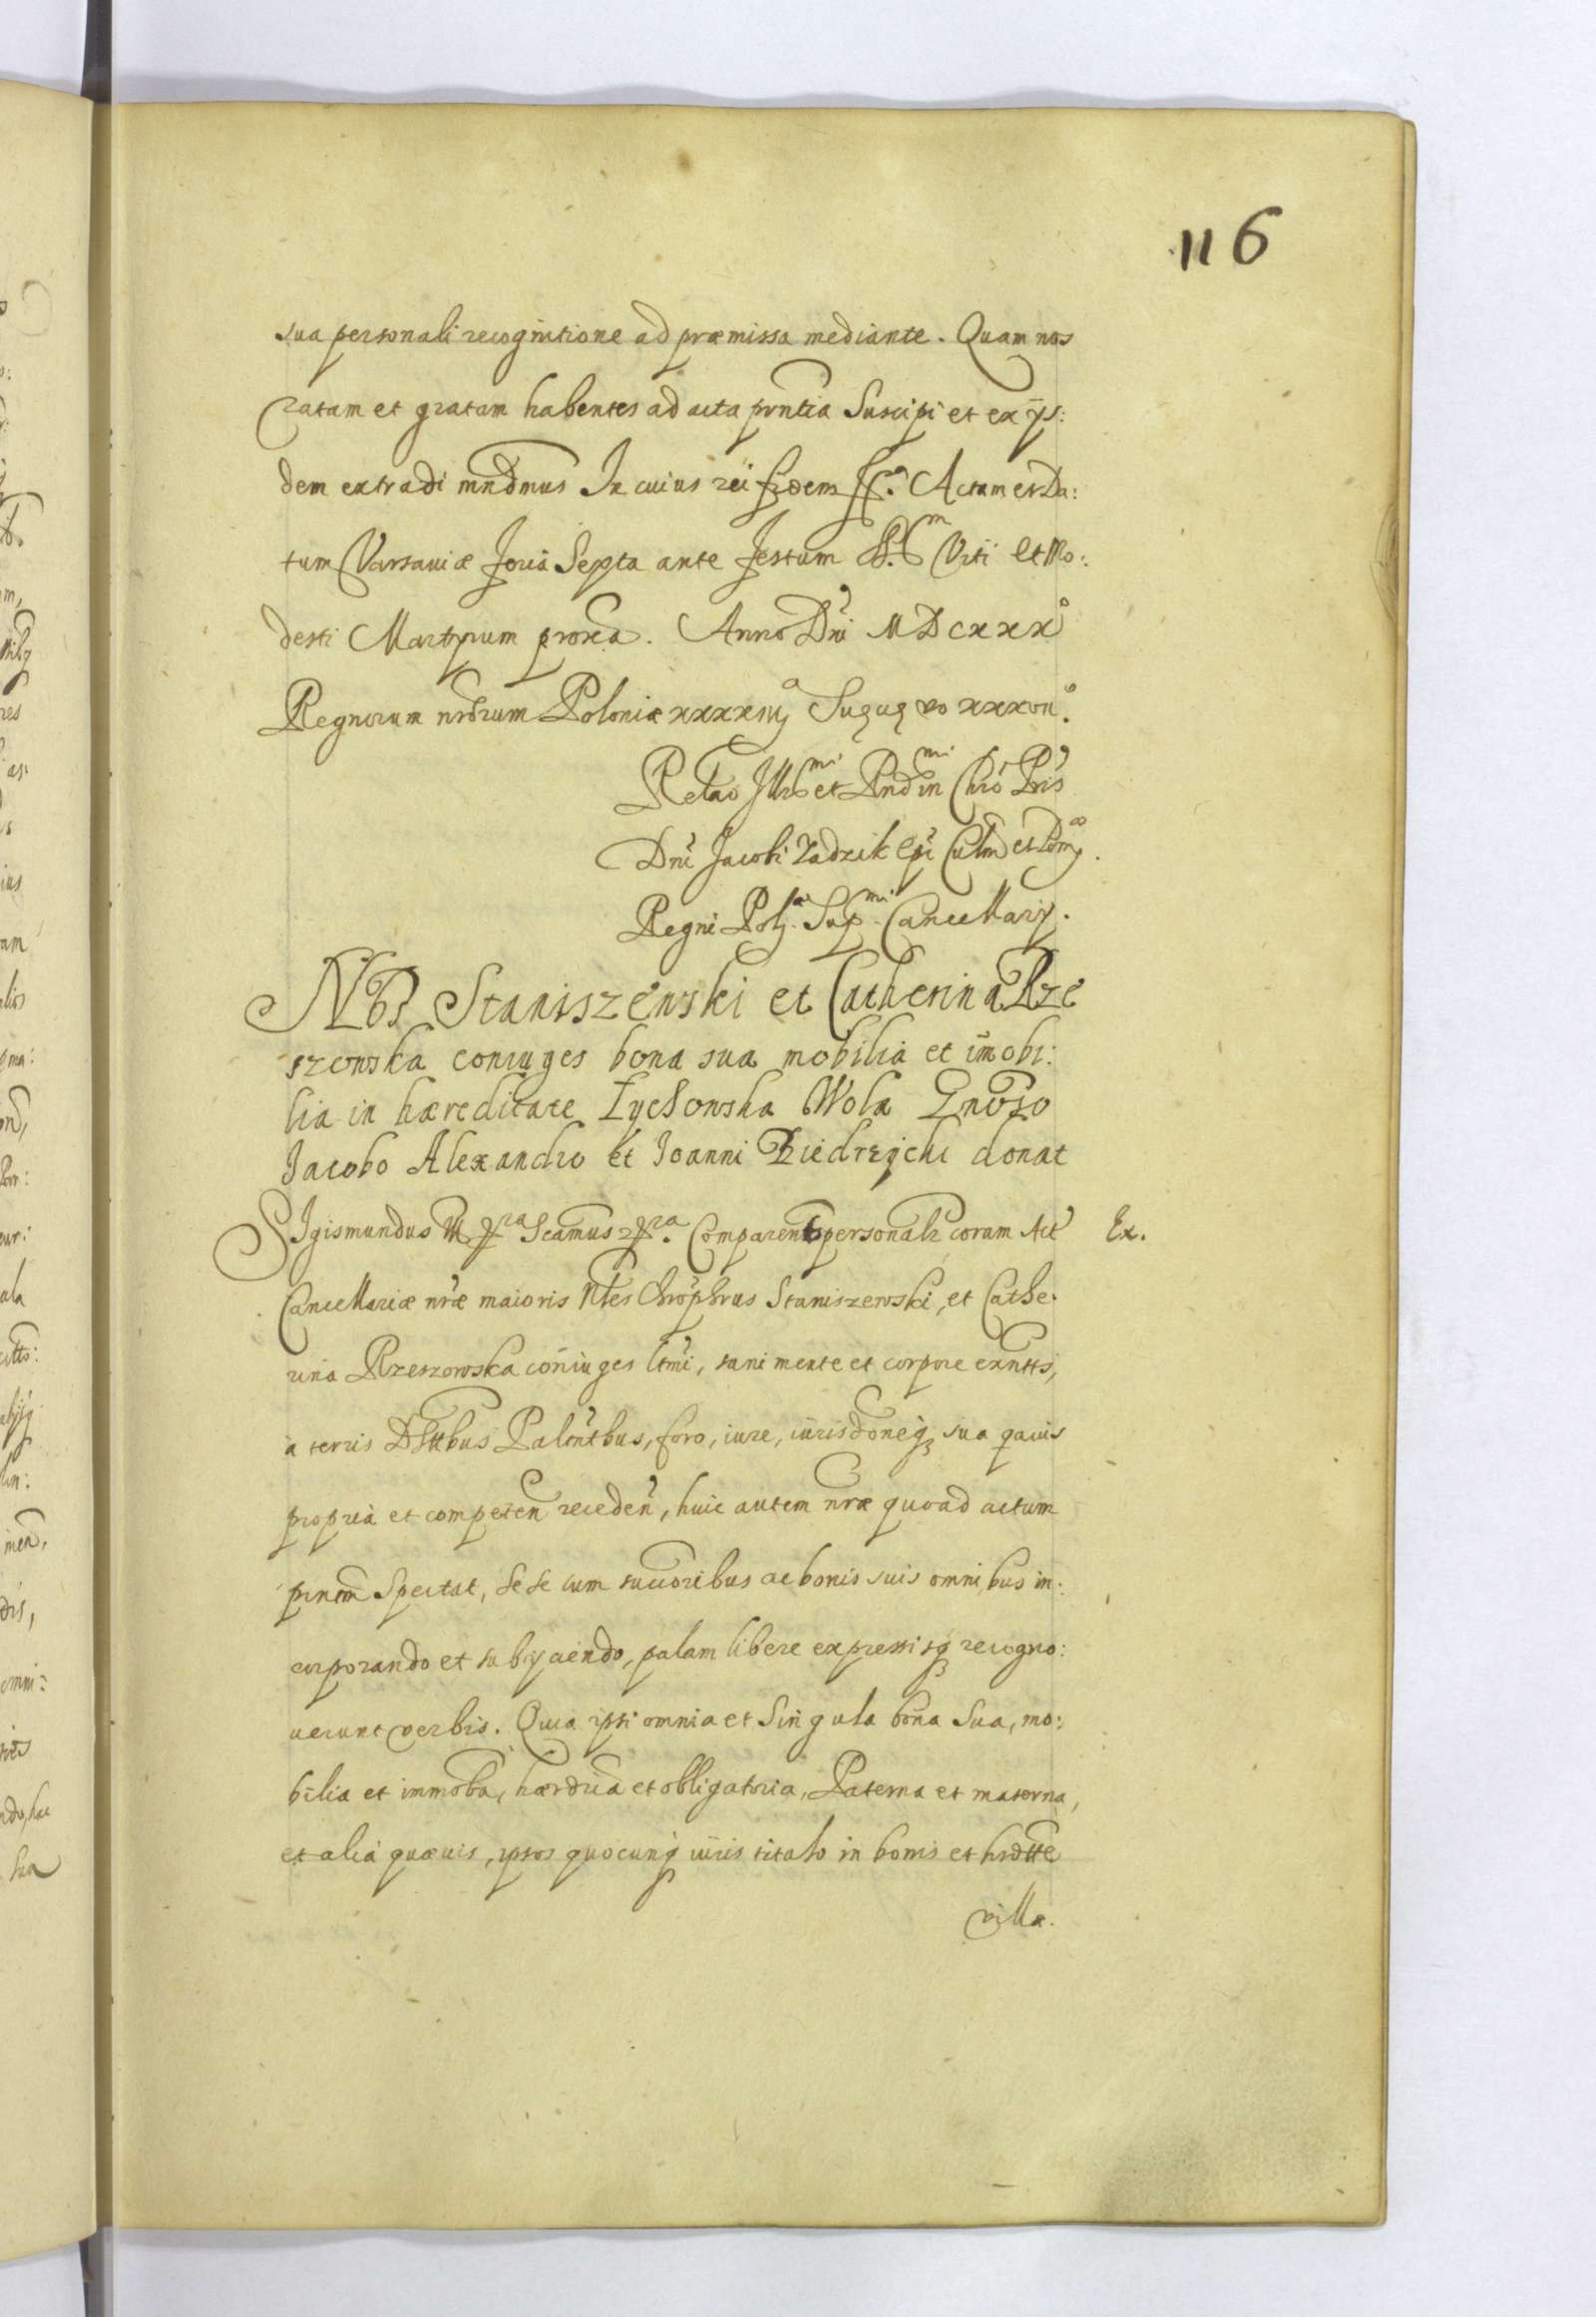 116
sua personali recognitione ad præmissa mediante. Quam nos
ratam et gratam habentes ad acta pñtia Suscipi et ex ijs:
dem extradi mñdmus In cuius rei fidem Actum et Da:
tum Varsauiæ feria Sexta ante festum Viti et Mo:
desti Martyrum proxa. Anno Dni MDCXXX
Regnorum nrorum Poloniæ xxxxiij vo xxxvii.
Relao Illmi et Rndmi in Chro Pris
Dni Jacobi Zadzik Epi Culm et Pom
Regni Pol. Sup. Cancellarij.
Nbs Staniszewski et Catherina Rze
szowska coniuges bona sua mobilia et imobi:
lia in hæreditate Łychowska Wola Gnoso
Jacobo Alexandro et Joanni donat
Sigismundus Scamus Comparentes personalr coram Act Ex.
Cancellariæ nræ maioris Nbles Chrophrus Staniszewski, et Cathe:
rina Rzeszowska coniuges ltmi, sani mente et corpore exntes,
a terris Dttbus Palontbus, foro, iure, iurisdoneq sua qauis
propria et competen receden, huic autem nræ quoad actum
pntem Spectat, sese cum succoribus ac bonis suis omnibus in:
corporando et subijciendo, palam libere expressisq recogno:
uerunt verbis. Quia ipsi omnia et Singula bona Sua, mo:
bilia et immobia, hærdria et obligatoria, Paterna et materna,
et alia quæuis, ipsos quocunq iuris titulo in bonis et hrdtte
villa.